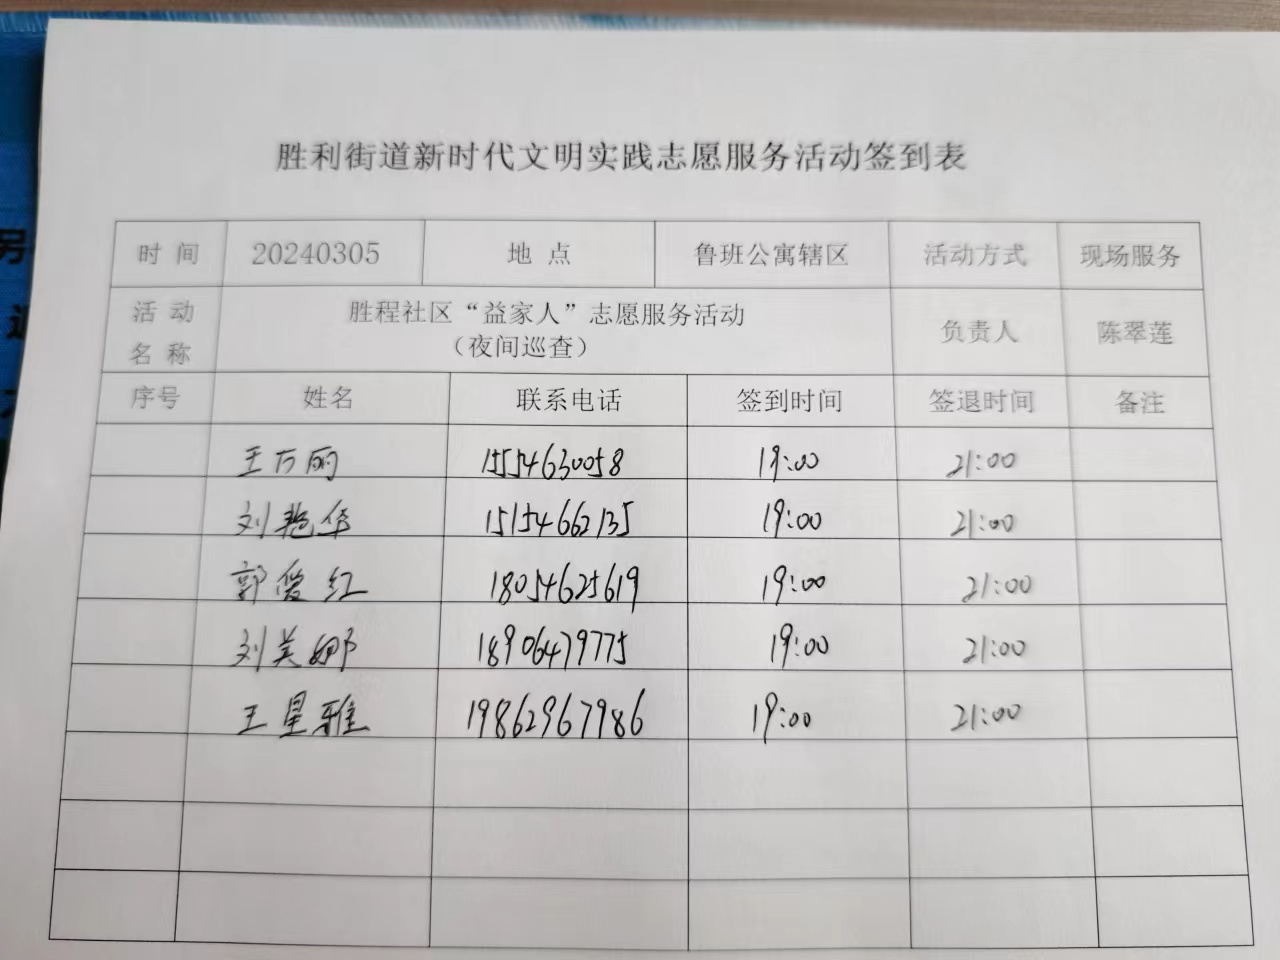 胜利街道新时代文明实践志愿服务活动签到表
时 间 20240305 地 点 鲁班公寓辖区 活动方式 现场服务
活 动 名 称 胜程社区“益家人”志愿服务活动 (夜间巡查) 负责人 陈翠莲
序号 姓名 联系电话 签到时间 签退时间 备注
王万丽 15554630058 19:00 21:00
刘艳华 15154662135 19:00 21:00
郭爱红 18054625619 19:00 21:00
刘美娜 18906479775 19:00 21:00
王星雅 19862967986 19:00 21:00
另